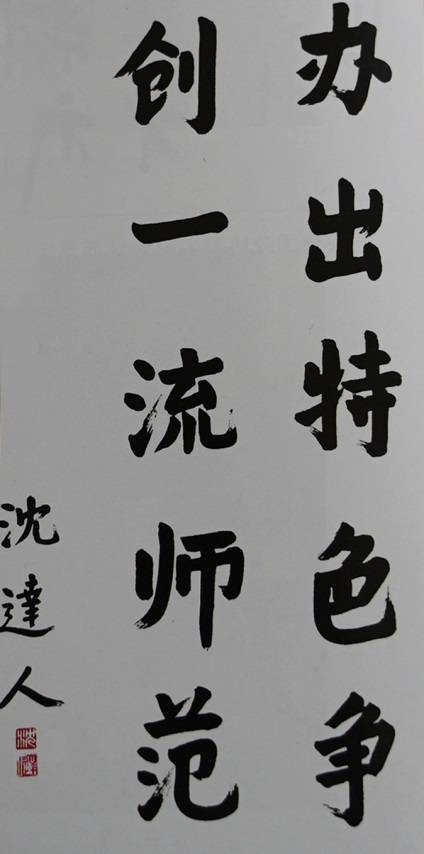 办出特色争
创一流师范
沈達人